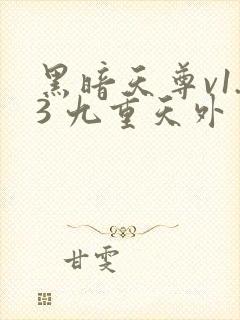 黑暗天尊v1.
3 九重天外
甘雯